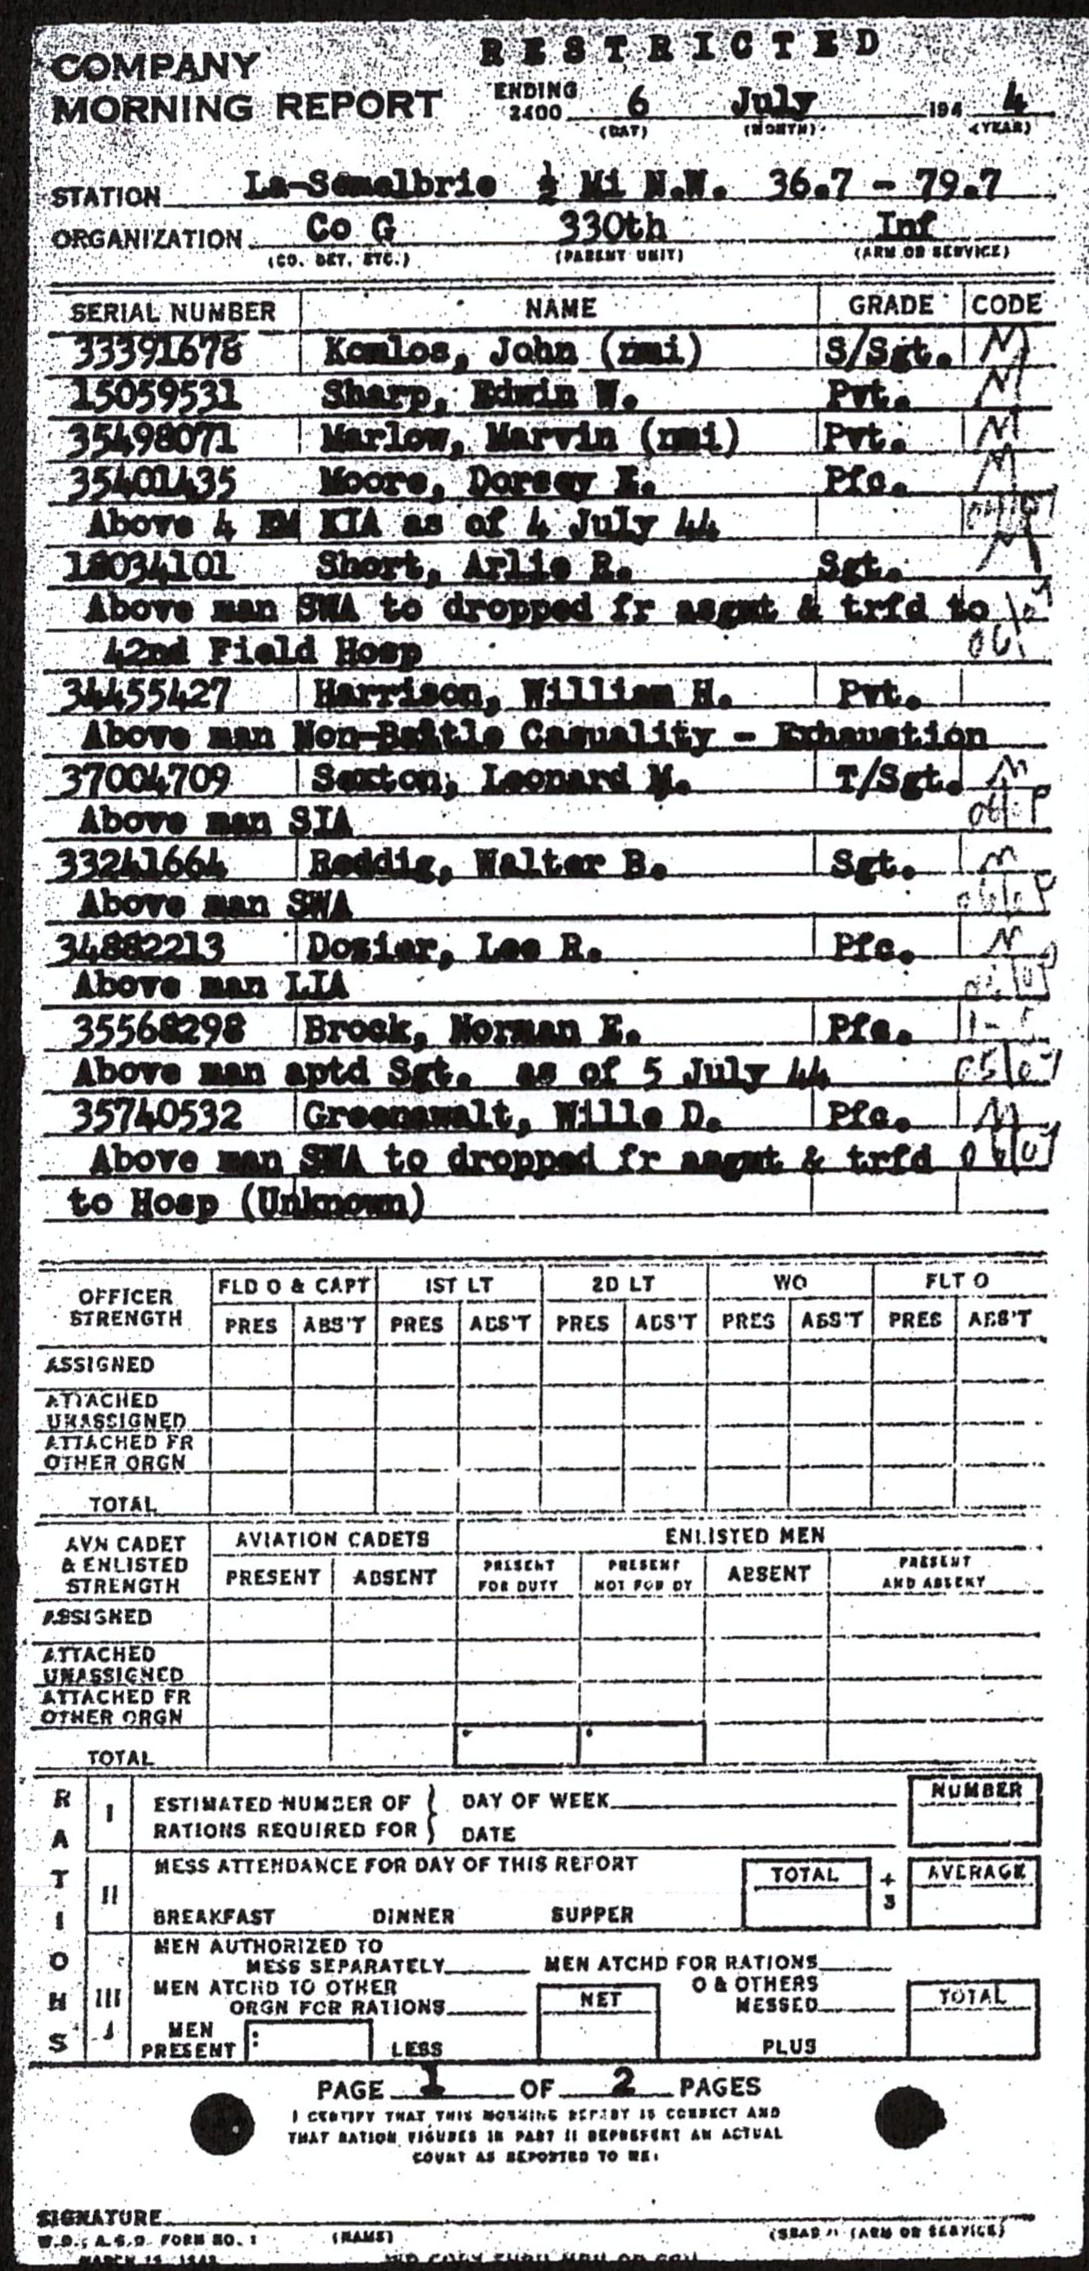 RESTRICTED
COMPANY
MORNING REPORT
ENDING 2400 6 July 194 4
(DAY) (MONTH) (YEAR)
STATION La-Semelbrie ½ Mi N.W. 36.7 - 79.7
ORGANIZATION Co G 330th Inf
(CO. DET. ETC.) (PARENT UNIT) (ARM OR SERVICE)
SERIAL NUMBER NAME GRADE CODE
33391678 Komlos, John (nmi) S/Sgt. M
15059531 Sharp, Edwin W. Pvt. M
35498071 Marlow, Marvin (nmi) Pvt. M
35401435 Moore, Dorsey E. Pfc. M
Above 4 EM KIA as of 4 July 44
18034101 Short, Arlie R. Sgt. M
Above man SWA to dropped fr asgmt & trfd to
42nd Field Hosp
34455427 Harrison, William H. Pvt.
Above man Non-Battle Casuality - Exhaustion
37004709 Sexton, Leonard M. T/Sgt. M
Above man SIA
33241664 Reddig, Walter B. Sgt. M
Above man SWA
34882213 Dosier, Lee R. Pfc. M
Above man LIA
35568298 Brock, Norman E. Pfc.
Above man aptd Sgt. as of 5 July 44 05/07
35740532 Greenawalt, Wille D. Pfc. M
Above man SWA to dropped fr asgmt & trfd 06/07
to Hosp (Unknown)
OFFICER STRENGTH FLD O & CAPT 1ST LT 2D LT WO FLT O
PRES ABS'T PRES ABS'T PRES ABS'T PRES ABS'T PRES ABS'T
ASSIGNED
ATTACHED UNASSIGNED
ATTACHED FR OTHER ORGN
TOTAL
AVN CADET & ENLISTED STRENGTH AVIATION CADETS ENLISTED MEN
PRESENT ABSENT PRESENT FOR DUTY PRESENT NOT FOR DY ABSENT PRESENT AND ABSENT
ASSIGNED
ATTACHED UNASSIGNED
ATTACHED FR OTHER ORGN
TOTAL
RATIONS
I ESTIMATED NUMBER OF RATIONS REQUIRED FOR DAY OF WEEK NUMBER
DATE
II MESS ATTENDANCE FOR DAY OF THIS REPORT TOTAL ÷ 3 AVERAGE
BREAKFAST DINNER SUPPER
III MEN AUTHORIZED TO
MESS SEPARATELY MEN ATCHD FOR RATIONS
MEN ATCHD TO OTHER O & OTHERS
ORGN FOR RATIONS NET MESSED TOTAL
MEN PRESENT LESS PLUS
PAGE 1 OF 2 PAGES
I CERTIFY THAT THIS MORNING REPORT IS CORRECT AND
THAT RATION FIGURES IN PART II REPRESENT AN ACTUAL
COUNT AS REPORTED TO ME:
SIGNATURE
W.D., A.G.O. FORM NO. 1 (NAME) (GRADE) (ARM OR SERVICE)